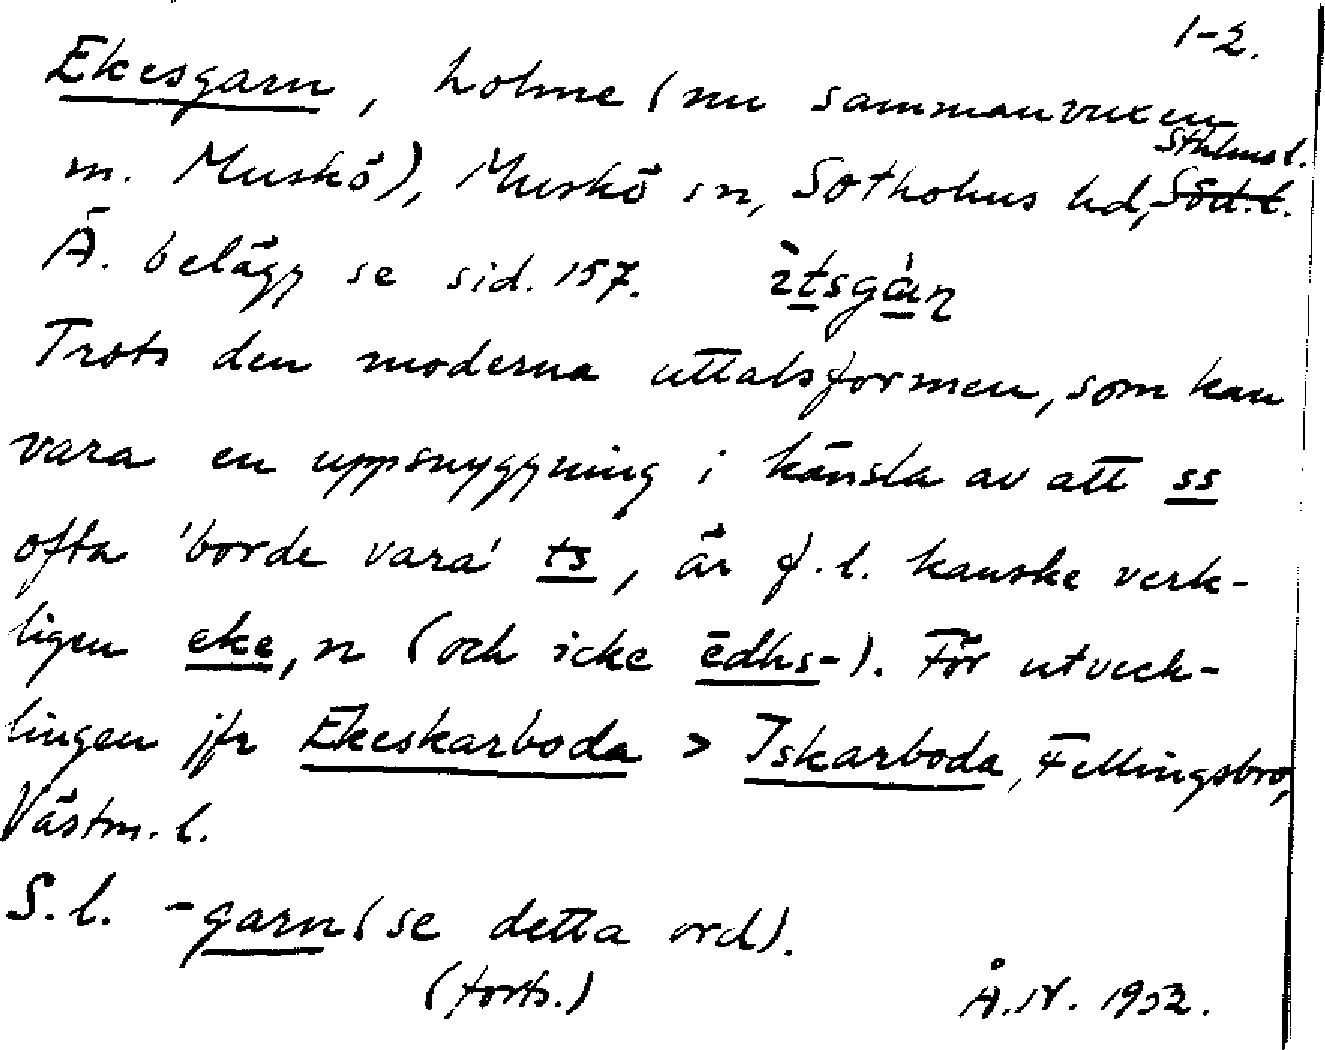 1-2.
Ekesgarn, holme (nu sammanvuxen
m. Muskö), Muskö sn, Sotholms hd, Sthlms l.
Ä. belägg se sid. 157. ìtsgán
Trots den moderna uttalsformen, som kan
vara en uppsnyggning i känsla av att ss
ofta 'borde vara' ts, är f.l. kanske verk-
ligen eke, n (och icke ēdhs-). För utveck-
lingen jfr Ekeskarboda > Iskarboda, Fellingsbro,
Västm. l.
S.l. -garn (se detta ord).
(forts.) Å.N. 1952.